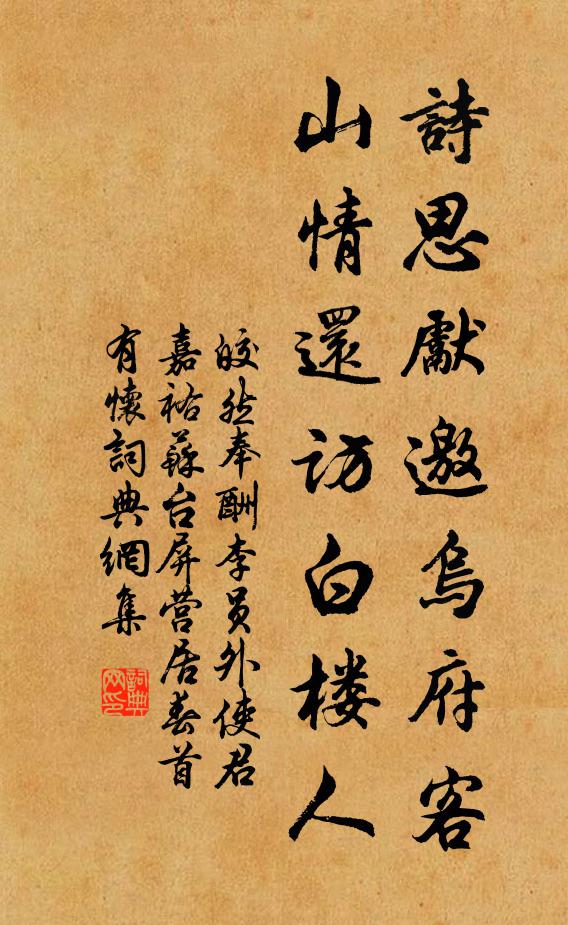 詩思獻邀烏府客
山情還訪白楼人
皎然奉酬李員外使君
嘉祐蘇台屏营居春首
有懷詞典網集
詞典
网印